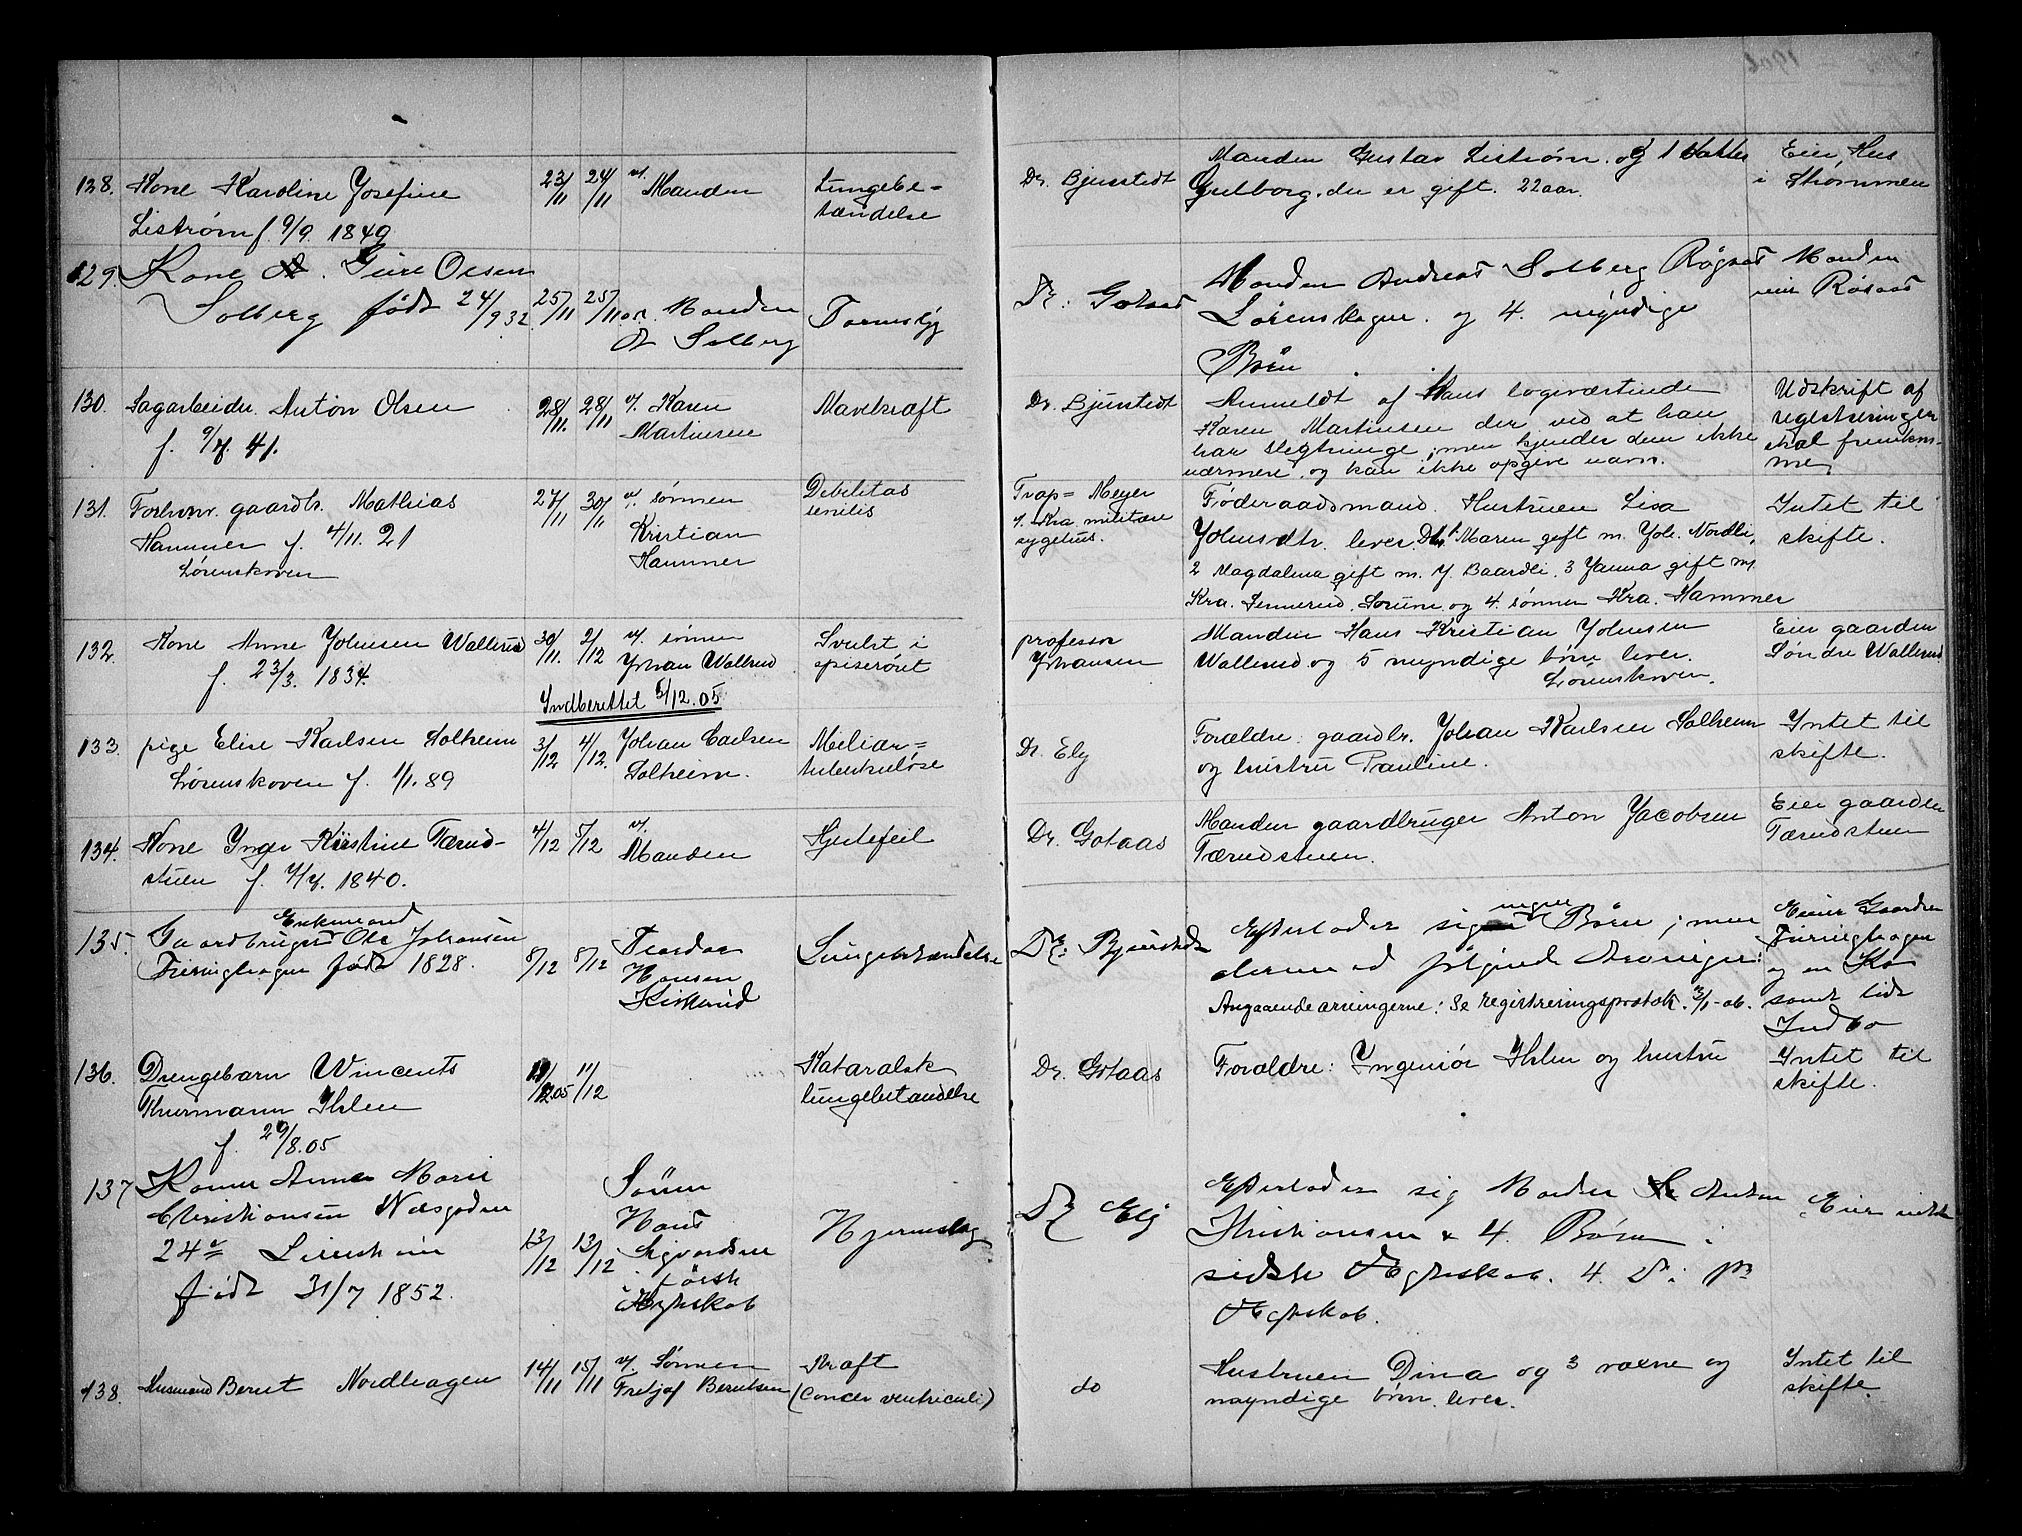 128. Kone Karoline Josefine 23/11 24/11 v/ Manden Lungebe- Dr. Bjurstedt Manden Gustav Liström. og 1 datter Eier Hus
Liström f. 9/9. 1849 tændelse Gulborg, der er gift. 22 aar. i Strømmen
129. Kone Olsen Manden Andreas Solberg Manden
Solberg født 24/9 32 25/11 25/11 Manden Dr. Gotaas Lørenskogen. og 4. myndige eier
Solberg Børn
130. Sagarbeider. Anton Olsen 28/11. 28/11 v/. Karen Mavekræft Dr. Bjurstedt Anmeldt af Hans logiværtinde Udskrift af
f. 9/7. 41. Martinsen Karen Martinsen der ved at han registreringen
har slegtninge, men kjender dem ikke skal fremkom-
nærmere, og kan ikke opgive navn. me.
131. gaardbr. Mathias 27/11 30/11 v. sønnen Debilitas Meyer Føderaadsmand. Hustruen Lisa Intet til
Hammer f. 4/11. 21 Kristian senilis v. Kra. militære Johnsdtr. lever. 1 Maren gift m. Joh. Nordli, skifte.
Lørenskoven Hammer sygehus. 2 Magdalena gift m. J. Baardli. 3 Janna gift m.
Kra. Sørum og 4. sønnen Kra. Hammer
132. Kone Anne Johnsen Wallerud 30/11. 2/12 v/. sønnen Svulst i professor Manden Hans Kristian Johnsen Eier gaarden
f. 23/3. 1834. Johan Wallerud spiserøret Johansen Wallerud og 5 myndige børn lever. Søndre Wallerud
Indberettet 5/12.05 Lørenskoven.
133. pige Elise Karlsen Solheim 3/12 4/12. Johan Carlsen Miliær= Dr. Ely Forældre: gaardbr. Johan Karlsen Solheim Intet til
Lørenskoven f. 1/1. 89 Solheim. tuberkuløse og hustru Pauline. skifte.
134. Kone Inger Kirstine Tærud- 4/12 5/12 v/. Hjertefeil Dr. Gotaas Manden gaardbruger Anton Jacobsen Eier gaarden
stuen f. 4/7. 1840. Manden Tærudstuen. Tærudstuen
135. Enkemand ingen
Gaardbruger Ole Johansen 8/12 8/12 Hansen Lungebetændelse Dr. Bjurstedt Efterlader sig Børn; men Eier Gaarden
født 1828. derimod følgende Arvinger: og en Ko
Angaaende arvingerne: Se registreringsprotok. 3/1-06. samt lidt
Indbo
136. Drengebarn Wincents 11/12.05 11/12 Kataralsk Dr. Gotaas Forældre: Ingeniör Ihlen og hustru Intet til
Thurmann Ihlen lungebetændelse skifte.
f. 29/8.05
137 Anne Marie Sönn Efterlader sig Manden Anton Eier intet
Christiansen Næsgaden Hans Hjerneslag Dr Ely Kristiansen & 4. Børn i
24 13/12 13/12 Sigvardsen sidste Ægteskab. 4. Do i
født 31/7 1852. i første Ægteskab.
Ægteskab
138. Husmand Bernt Nordhagen 14/11 15/11 v/. Sønnen Kræft do Hustruen Dina og 3 voxne og Intet til
Fretjof Berntsen (Cancer ventriculi) myndige børn lever. skifte.